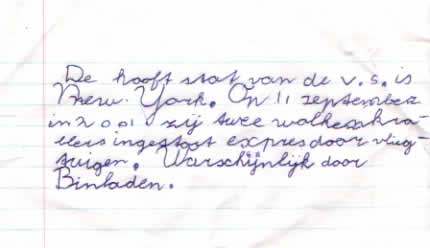 De hooft stat van de v.s. is
New York. On 11 september
in 2001 zij twee wolkenkra-
llers ingestost expres door vlieg-
tuigen. Warschijnlijk door
Binladen.